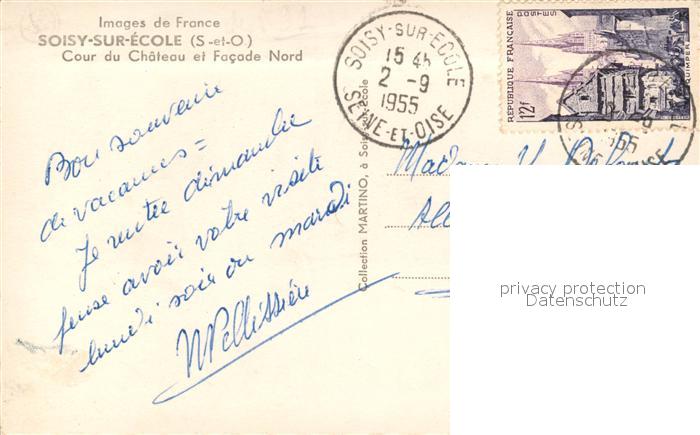 Images de France
SOISY-SUR-ÉCOLE (S-et-O)
Cour du Château et Façade Nord
SOISY-SUR-ECOLE
15 45
2-9
1955
SEINE-ET-OISE
POSTES
RÉPUBLIQUE FRANÇAISE
QUIMPER
12f
Bon souvenir
de vacances =
Je rentre dimanche
pense avoir votre visite
lundi soir ou mardi
MPellissière
Collection MARTINO, à Soisy-s-École
Madame
privacy protection
Datenschutz